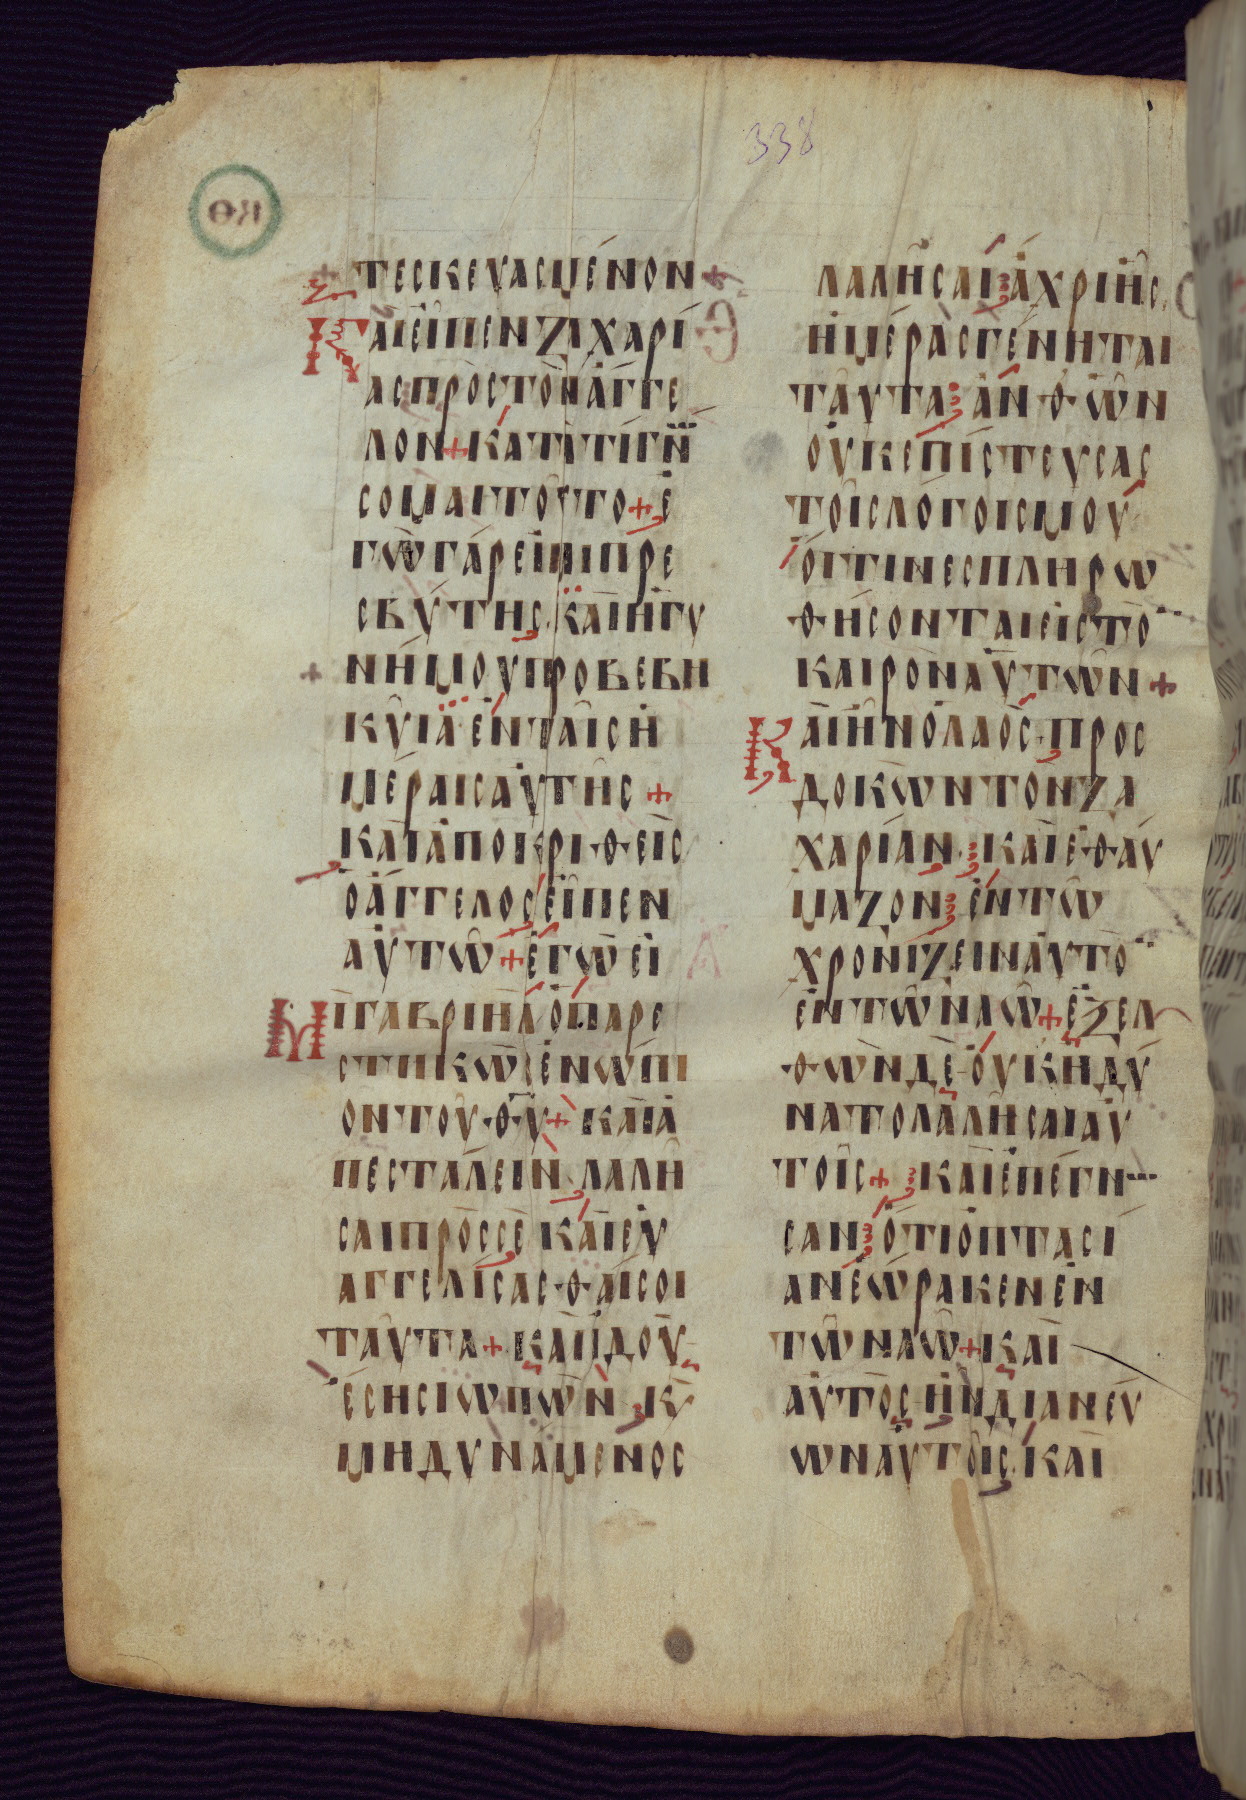 338
ΚΘ
ΤΕΣΚΕΥΑΣΜΕΝΟΝ+
ΚΑΙΕΙΠΕΝΖΑΧΑΡΙ
ΑΣΠΡΟΣΤΟΝΑΓΓΕ
ΛΟΝ+ΚΑΤΑΤΙΓΝΩ
ΣΟΜΑΙΤΟΥΤΟ+Ε
ΓΩΓΑΡΕΙΜΙΠΡΕ
ΣΒΥΤΗΣ ΚΑΙΗΓΥ
ΝΗΜΟΥΠΡΟΒΕΒΗ
ΚΥΙΑΕΝΤΑΙΣΗ
ΜΕΡΑΙΣΑΥΤΗΣ+
ΚΑΙΑΠΟΚΡΙΘΕΙΣ
ΟΑΓΓΕΛΟΣΕΙΠΕΝ
ΑΥΤΩ+ΕΓΩΕΙ
ΜΙΓΑΒΡΙΗΛΟΠΑΡΕ
ΣΤΗΚΩΣΕΝΩΠΙ
ΟΝΤΟΥΘΥ+ΚΑΙΑ
ΠΕΣΤΑΛΕΙΝ ΛΑΛΗ
ΣΑΙΠΡΟΣΣΕ ΚΑΙΕΥ
ΑΓΓΕΛΙΣΑΣΘΑΙΣΟΙ
ΤΑΥΤΑ+ΚΑΙΙΔΟΥ
ΕΣΗΣΙΩΠΩΝ Κ
ΜΗΔΥΝΑΜΕΝΟΣ
ΛΑΛΗΣΑΙ ΑΧΡΙΗΣ
ΗΜΕΡΑΣΓΕΝΗΤΑΙ
ΤΑΥΤΑ ΑΝΘΩΝ
ΟΥΚΕΠΙΣΤΕΥΣΑΣ
ΤΟΙΣΛΟΓΟΙΣΜΟΥ
ΟΙΤΙΝΕΣΠΛΗΡΩ
ΘΗΣΟΝΤΑΙΕΙΣΤΟ
ΚΑΙΡΟΝΑΥΤΩΝ+
ΚΑΙΗΝΟΛΑΟΣ ΠΡΟΣ
ΔΟΚΩΝΤΟΝΖΑ
ΧΑΡΙΑΝ ΚΑΙΕΘΑΥ
ΜΑΖΟΝ ΕΝΤΩ
ΧΡΟΝΙΖΕΙΝΑΥΤΟ
ΕΝΤΩΝΑΩ+ΕΞΕΛ
ΘΩΝΔΕ ΟΥΚΗΔΥ
ΝΑΤΟΛΑΛΗΣΑΙΑΥ
ΤΟΙΣ+ΚΑΙΕΠΕΓΝ
ΣΑΝ ΟΤΙΟΠΤΑΣΙ
ΑΝΕΩΡΑΚΕΝΕΝ
ΤΩΝΑΩ+ΚΑΙ
ΑΥΤΟΣ ΗΝΔΙΑΝΕΥ
ΩΝΑΥΤΟΙΣ ΚΑΙ